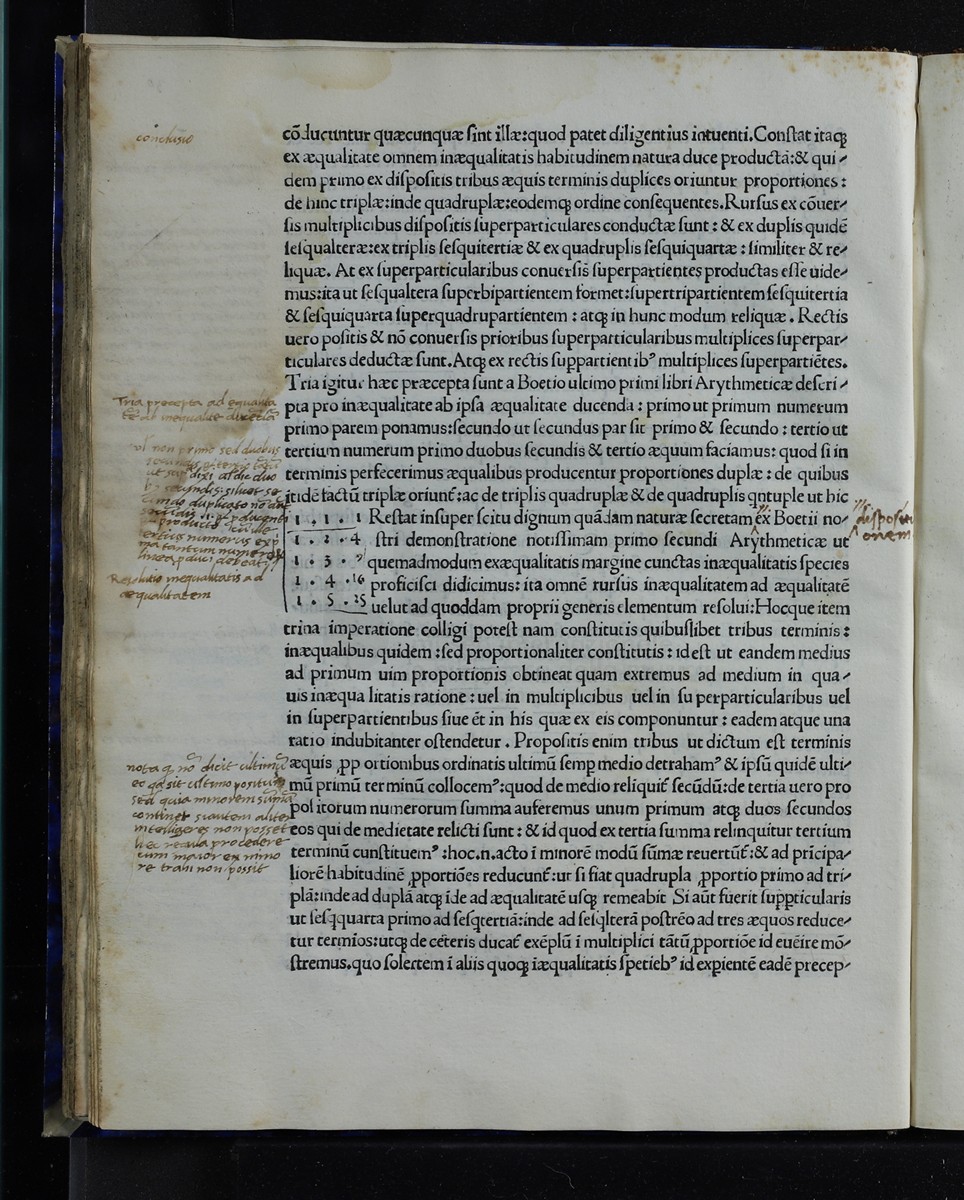 conclusio
cõducuntur quæcunquæ ſint illæ:quod patet diligentius intuenti.Conſtat itaqꝫ
ex æqualitate omnem inæqualitatis habitudinem natura duce productã:& qui-
dem primo ex diſpoſitis tribus æquis terminis duplices oriuntur proportiones:
de hinc triplæ:inde quadruplæ:eodemqꝫ ordine conſequentes.Rurſus ex cõuer-
ſis multiplicibus diſpoſitis ſuperparticulares conductæ ſunt: & ex duplis quidẽ
ſeſqualteræ:ex triplis ſeſquitertiæ & ex quadruplis ſeſquiquartæ: ſimiliter & re-
liquæ. At ex ſuperparticularibus conuerſis ſuperpartientes productas eſſe uide-
mus:ita ut ſeſqualtera ſuperbipartientem formet:ſupertripartientem ſeſquitertia
& ſeſquiquarta ſuperquadrupartientem: atqꝫ in hunc modum reliquæ. Rectis
uero poſitis & nõ conuerſis prioribus ſuperparticularibus multiplices ſuperpar-
ticulares deductæ ſunt.Atqꝫ ex rectis ſuꝑpartientibꝰ multiplices ſuperpartiẽtes.
Tria igitur hæc præcepta ſunt a Boetio ultimo primi libri Arythmeticæ deſcri-
pta pro inæqualitate ab ipſa æqualitate ducenda: primo ut primum numerum
primo parem ponamus:ſecundo ut ſecundus par ſit primo & ſecundo: tertio ut
tertium numerum primo duobus ſecundis & tertio æquum faciamus: quod ſi in
terminis perfecerimus æqualibus producentur proportiones duplæ: de quibus
itidẽ factũ triplæ oriunt̃:ac de triplis quadruplæ & de quadruplis qntuple ut hic
1 . 1 . 1 Reſtat inſuper ſcitu dignum quãdam naturæ ſecretam ex Boetii no-
1 . 2 . 4 ſtri demonſtratione notiſſimam primo ſecundi Arythmeticæ ut
1 . 3 . 9 quemadmodum exæqualitatis margine cunctas inæqualitatis ſpecies
1 . 4 . 16 proficiſci didicimus: ita omnẽ rurſus inæqualitatem ad æqualitatẽ
1 . 5 . 25 uelut ad quoddam proprii generis elementum reſolui:Hocque item
trina imperatione colligi poteſt nam conſtitutis quibuſlibet tribus terminis:
inæqualibus quidem:ſed proportionaliter conſtitutis: id eſt ut eandem medius
ad primum uim proportionis obtineat quam extremus ad medium in qua-
uis inæqua litatis ratione: uel in multiplicibus uel in ſu perparticularibus uel
in ſuperpartientibus ſiue ẽt in his quæ ex eis componuntur: eadem atque una
ratio indubitanter oſtendetur. Propoſitis enim tribus ut dictum eſt terminis
æquis ꝓp ortionibus ordinatis ultimũ ſemp medio detrahamꝰ & ipſũ quidẽ ulti-
mũ primũ terminũ collocemꝰ:quod de medio reliquit̃ ſecũdũ:de tertia uero pro
poſ itorum numerorum ſumma auferemus unum primum atqꝫ duos ſecundos
eos qui de medietate relicti ſunt: & id quod ex tertia ſumma relinquitur tertium
terminũ cunſtituemꝰ:hoc.n.acto ĩ minorẽ modũ ſũmæ reuertũt̃:& ad prĩcipa-
liorẽ habitudinẽ ꝓportiões reducunt̃:ut ſi fiat quadrupla ꝓportio primo ad tri-
plã:inde ad duplã atqꝫ ĩde ad æqualitatẽ uſqꝫ remeabit Si aũt fuerit ſuꝑpticularis
ut ſeſqquarta primo ad ſeſqtertiã:inde ad ſeſqlterã poſtrẽo ad tres æquos reduce-
tur termĩos:utqꝫ de cẽteris ducat̃ exẽplũ ĩ multiplici tãtũ ꝓportiõe id euẽire mõ-
ſtremus.quo ſolertem ĩ aliis quoqꝫ ĩæqualitatis ſpetiebꝰ id expientẽ eadẽ precep-
Tria precepta ad equalita
vl non primo sed duobus
Resolutio inequalitatis ad
æqualitatem
dispositi
onem
nota q nõ dicit ultimũ
eo qd sit ultimo positum
sed quia minorem sũmã
continet si autem aliter
intelligeres non posset
hec regula procedere
cum maior ex mino
re trahi non possit